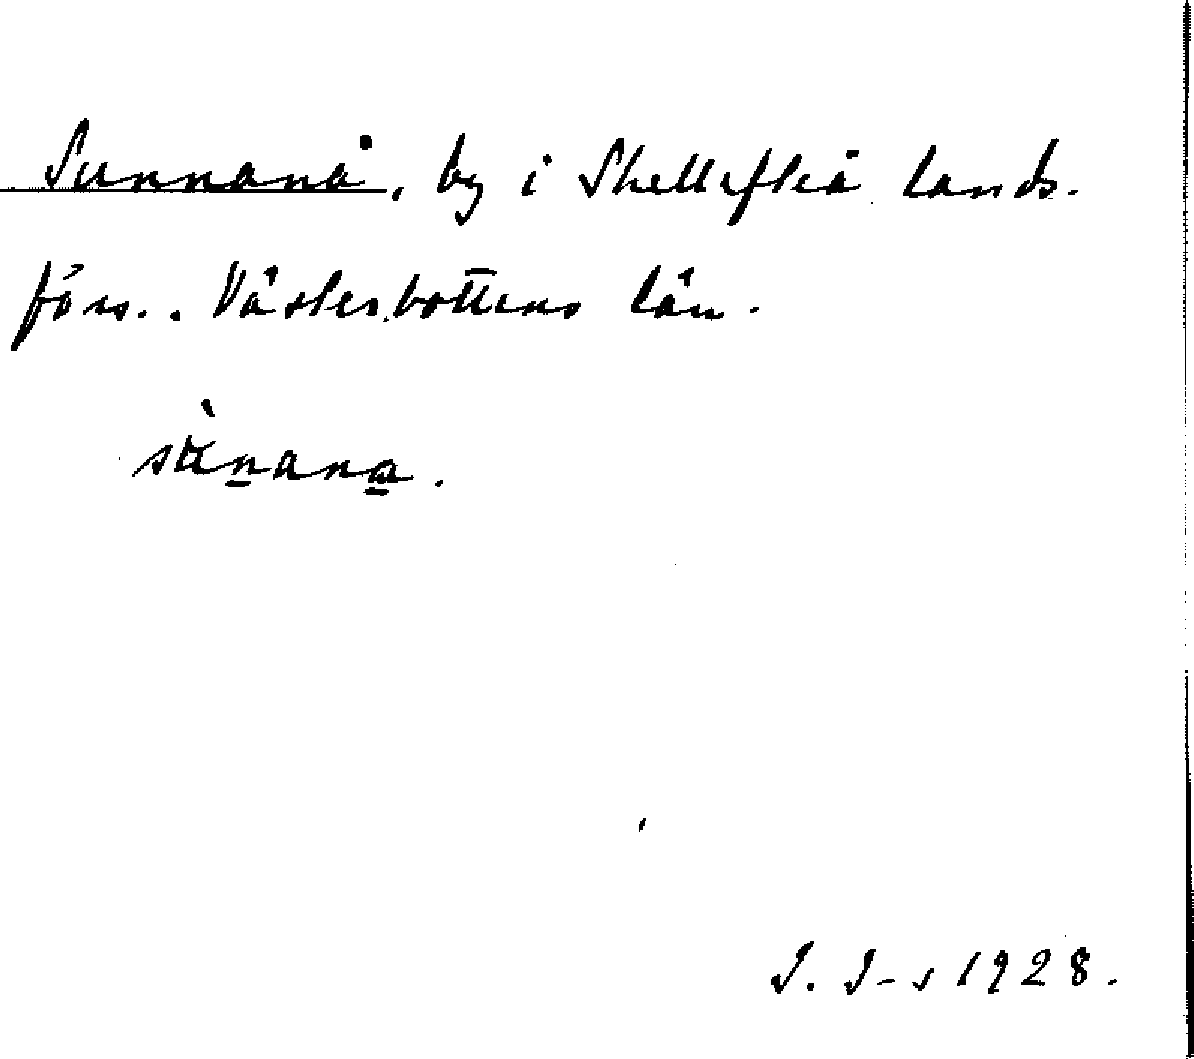 Sunnanå, by i Skellefteå lands-
förs., Västerbottens län.
J. J-s 1928.